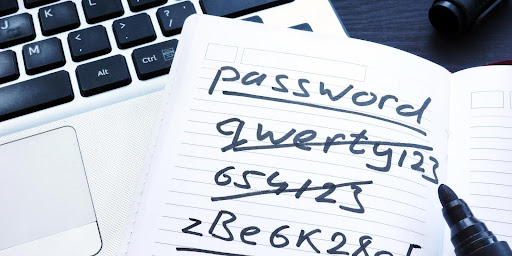 L
K
M
Alt
Ctrl
password
qwerty123
654123